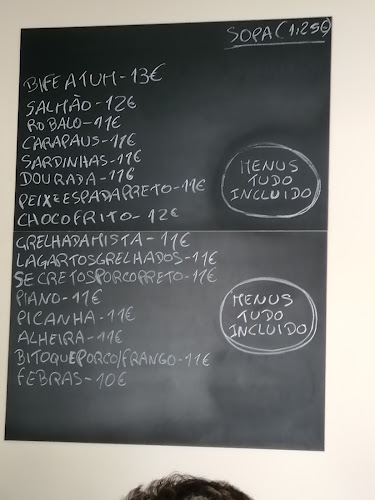 SOPA (1,25€)
BIFE ATUM - 13€
SALMÃO - 12€
ROBALO - 11€
CARAPAUS - 11€
SARDINHAS - 11€
DOURADA - 11€
PEIXE ESPADA PRETO - 11€
CHOCO FRITO - 12€
MENUS
TUDO
INCLUIDO
GRELHADA MISTA - 11€
LAGARTOS GRELHADOS - 11€
SECRETOS PORCO PRETO - 11€
PIANO - 11€
PICANHA - 11€
ALHEIRA - 11€
BITOQUE PORCO/FRANGO - 11€
FEBRAS - 10€
MENUS
TUDO
INCLUIDO